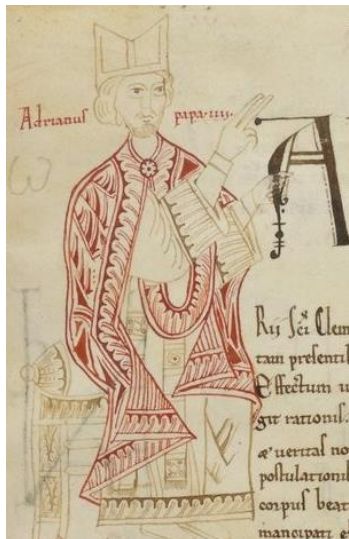 Adrianus papa·iiii·
A
Rii Sc̄i Clem
tam presenti
Effectum u
git rationis.
æ ueritas no
postulationib
corpus beat
mancipati e